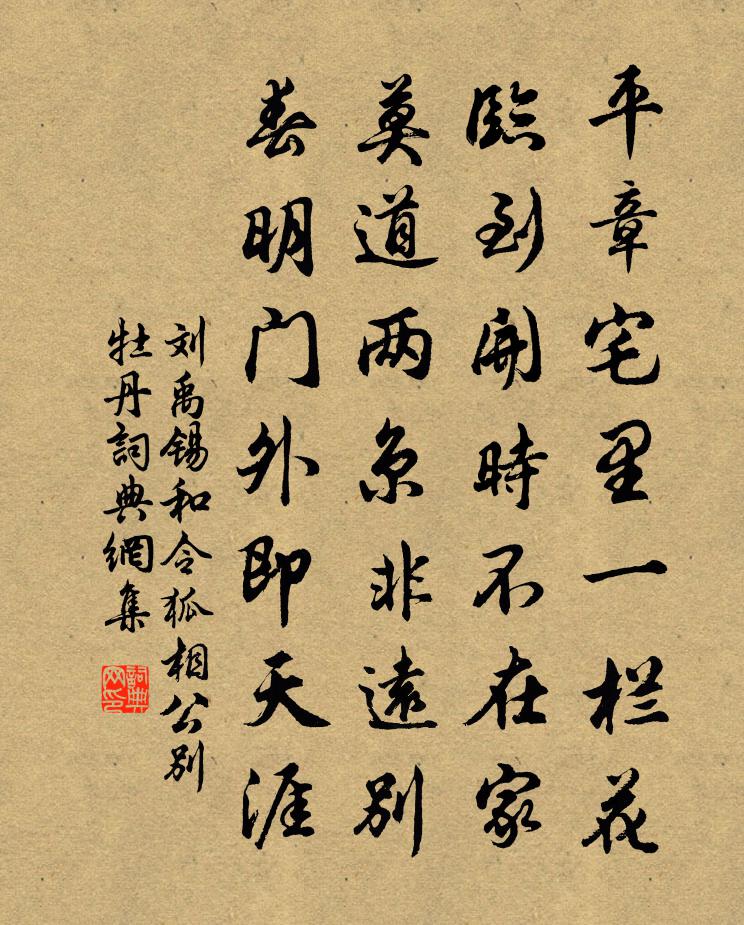 平章宅里一栏花
臨到開時不在家
莫道两京非遠别
春明门外即天涯
刘禹锡和令狐相公别
牡丹詞典網集
詞典网印